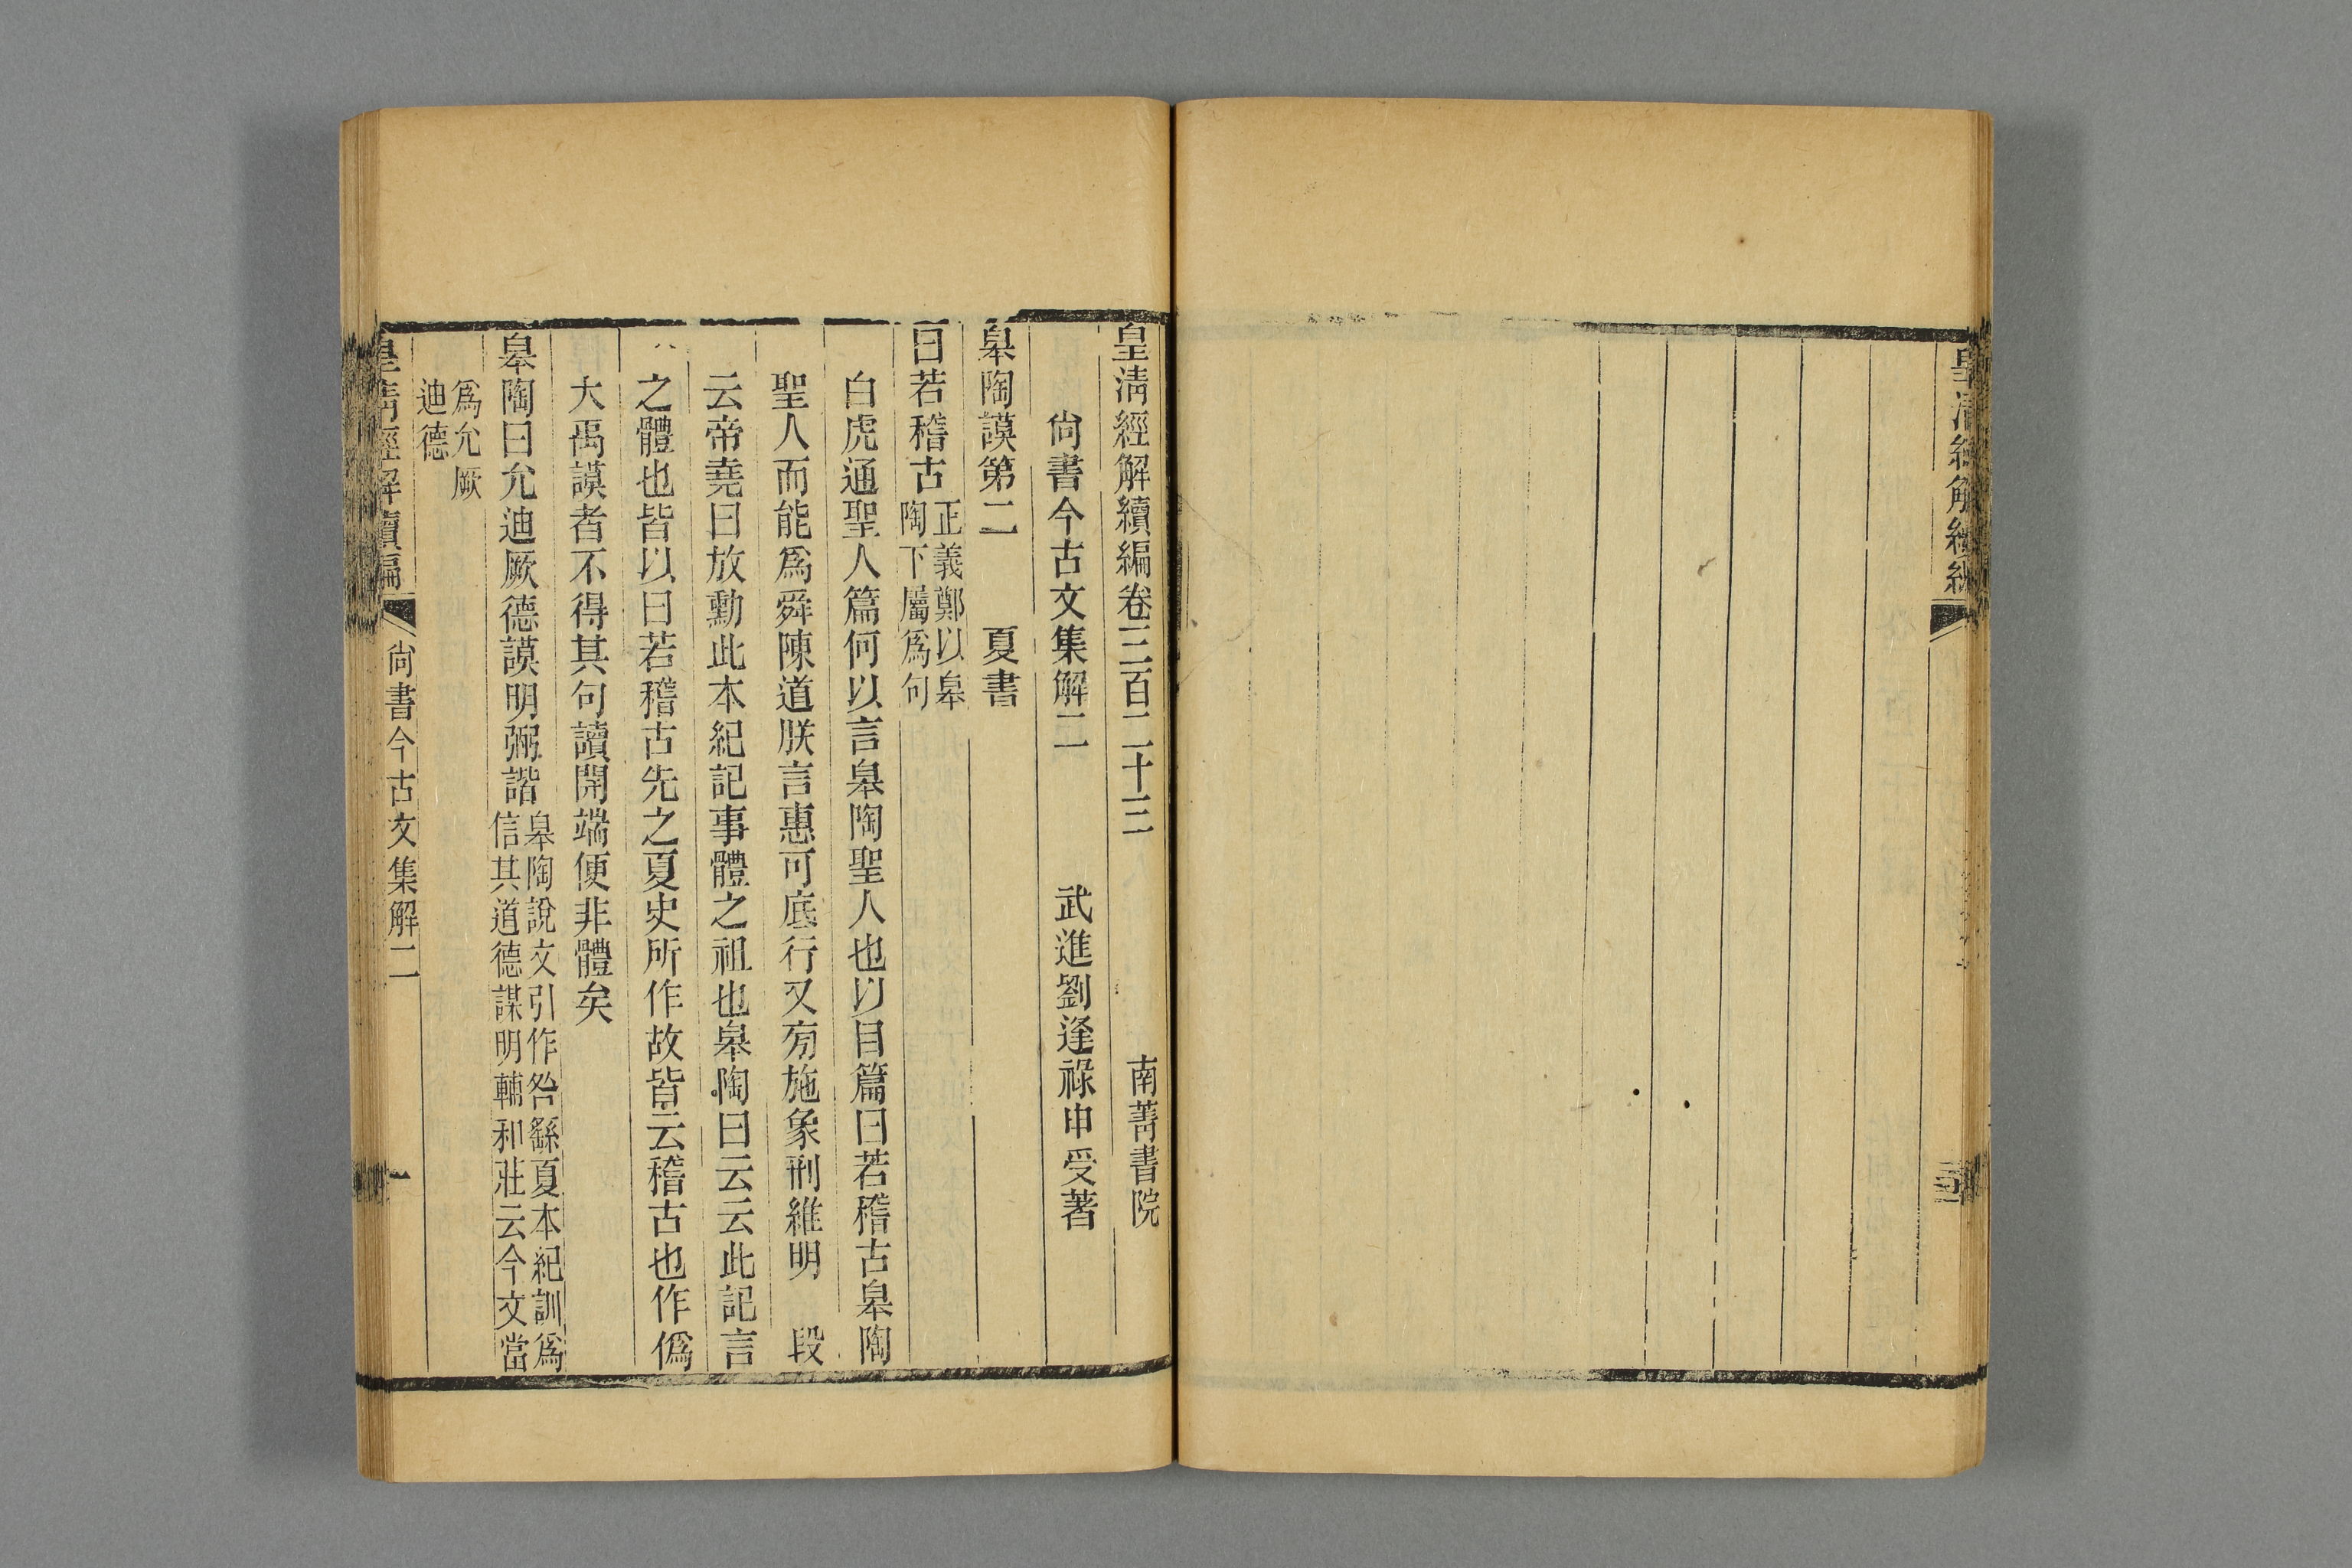 皇清經解續編
皇清經解續編卷三百二十三 南菁書院
尚書今古文集解二 武進劉逢祿申受著
皋陶謨第二 夏書
曰若稽古
正義鄭以皋
陶下屬爲句
白虎通聖人篇何以言皋陶聖人也以目篇曰若稽古皋陶
聖人而能爲舜陳道朕言惠可底行又旁施象刑維明 段
云帝堯曰放勳此本紀記事體之祖也皋陶曰云云此記言
之體也皆以曰若稽古先之夏史所作故皆云稽古也作僞
大禹謨者不得其句讀開端便非體矣
皋陶曰允迪厥德謨明弼諧
皋陶說文引作咎繇夏本紀訓爲
信其道德謀明輔和莊云今文當
爲允厥
迪德
皇清經解續編 尚書今古文集解二 一